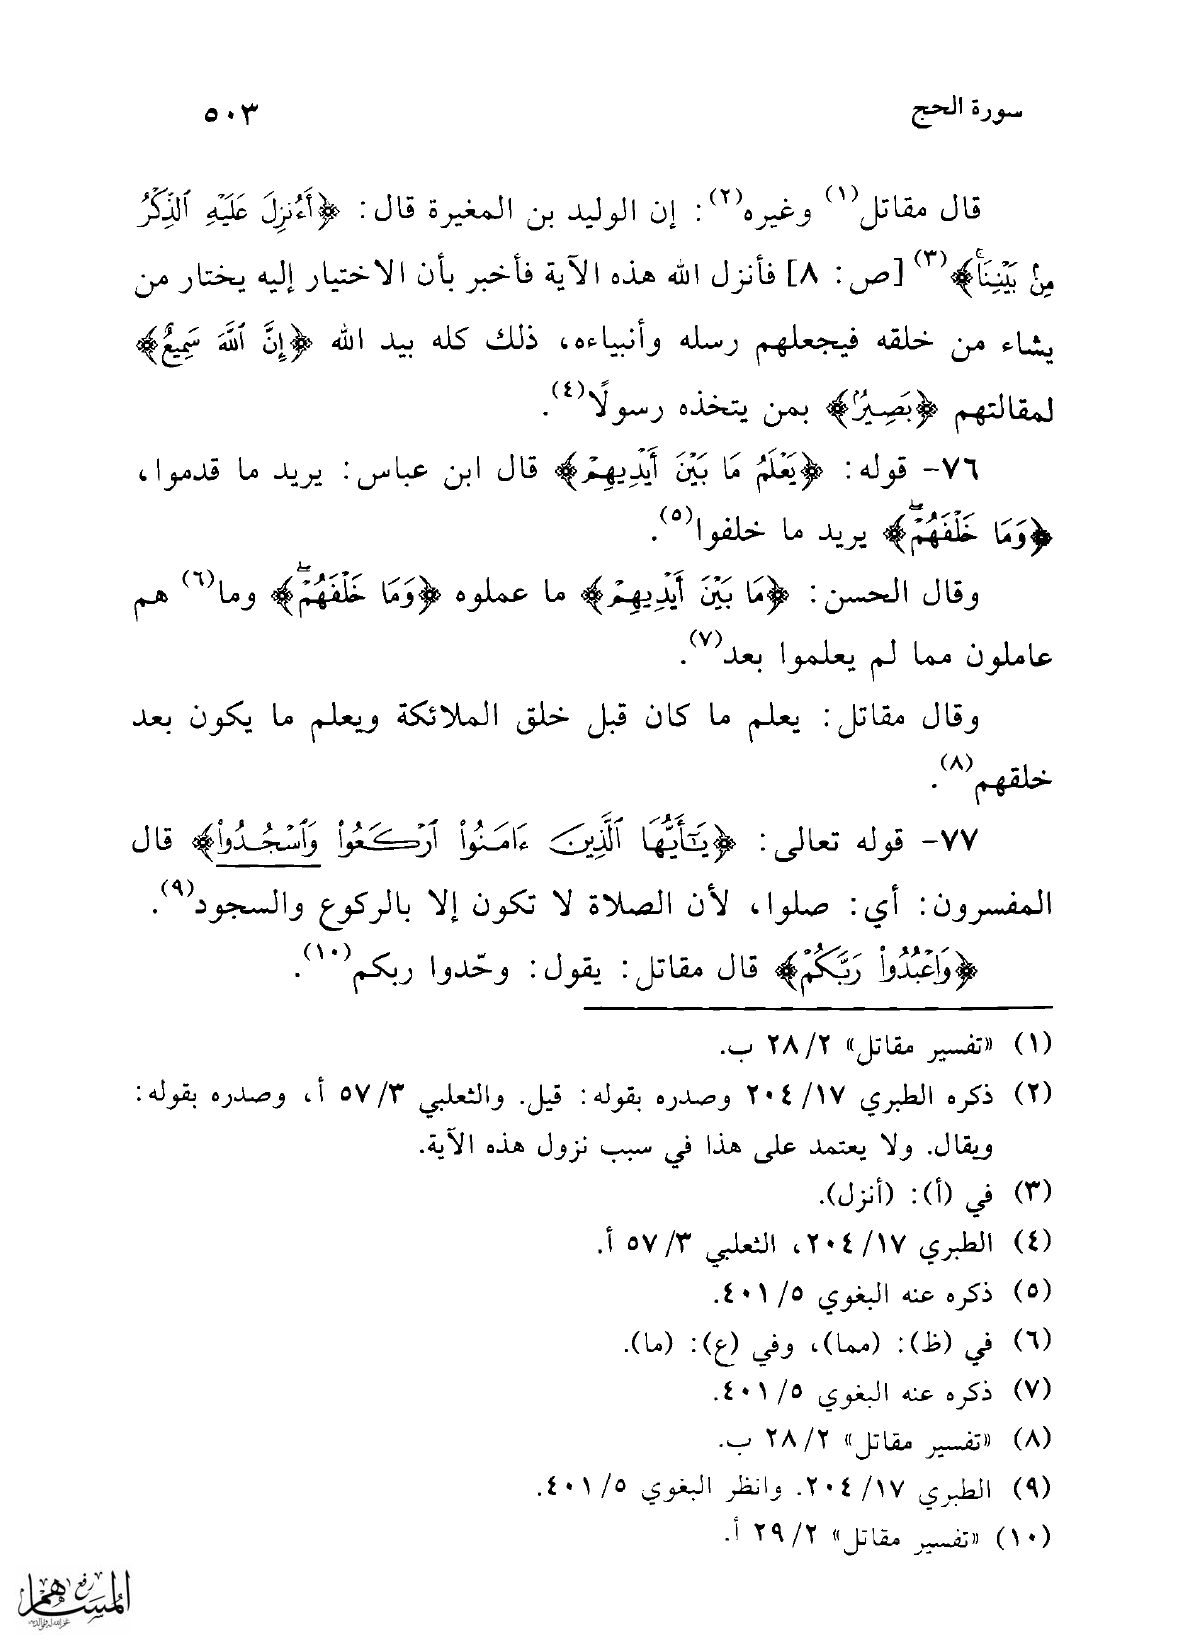 سورة الحج
٥٠٣
قال مقاتل(١) وغيره(٢): إن الوليد بن المغيرة قال: ﴿أَءُنزِلَ عَلَيْهِ ٱلذِّكْرُ
مِنۢ بَيْنِنَا﴾(٣) [ص: ٨] فأنزل الله هذه الآية فأخبر بأن الاختيار إليه يختار من
يشاء من خلقه فيجعلهم رسله وأنبياءه، ذلك كله بيد الله ﴿إِنَّ ٱللَّهَ سَمِيعٌ﴾
لمقالتهم ﴿بَصِيرٌ﴾ بمن يتخذه رسولًا(٤).
٧٦- قوله: ﴿يَعْلَمُ مَا بَيْنَ أَيْدِيهِمْ﴾ قال ابن عباس: يريد ما قدموا،
﴿وَمَا خَلْفَهُمْ﴾ يريد ما خلفوا(٥).
وقال الحسن: ﴿مَا بَيْنَ أَيْدِيهِمْ﴾ ما عملوه ﴿وَمَا خَلْفَهُمْ﴾ وما(٦) هم
عاملون مما لم يعلموا بعد(٧).
وقال مقاتل: يعلم ما كان قبل خلق الملائكة ويعلم ما يكون بعد
خلقهم(٨).
٧٧- قوله تعالى: ﴿يَـٰٓأَيُّهَا ٱلَّذِينَ ءَامَنُوا۟ ٱرْكَعُوا۟ وَٱسْجُدُوا۟﴾ قال
المفسرون: أي: صلوا، لأن الصلاة لا تكون إلا بالركوع والسجود(٩).
﴿وَٱعْبُدُوا۟ رَبَّكُمْ﴾ قال مقاتل: يقول: وحّدوا ربكم(١٠).
(١) «تفسير مقاتل» ٢٨/٢ ب.
(٢) ذكره الطبري ٢٠٤/١٧ وصدره بقوله: قيل. والثعلبي ٥٧/٣ أ، وصدره بقوله:
ويقال. ولا يعتمد على هذا في سبب نزول هذه الآية.
(٣) في (أ): (أنزل).
(٤) الطبري ٢٠٤/١٧، الثعلبي ٥٧/٣ أ.
(٥) ذكره عنه البغوي ٤٠١/٥.
(٦) في (ظ): (مما)، وفي (ع): (ما).
(٧) ذكره عنه البغوي ٤٠١/٥.
(٨) «تفسير مقاتل» ٢٨/٢ ب.
(٩) الطبري ٢٠٤/١٧. وانظر البغوي ٤٠١/٥.
(١٠) «تفسير مقاتل» ٢٩/٢ أ.